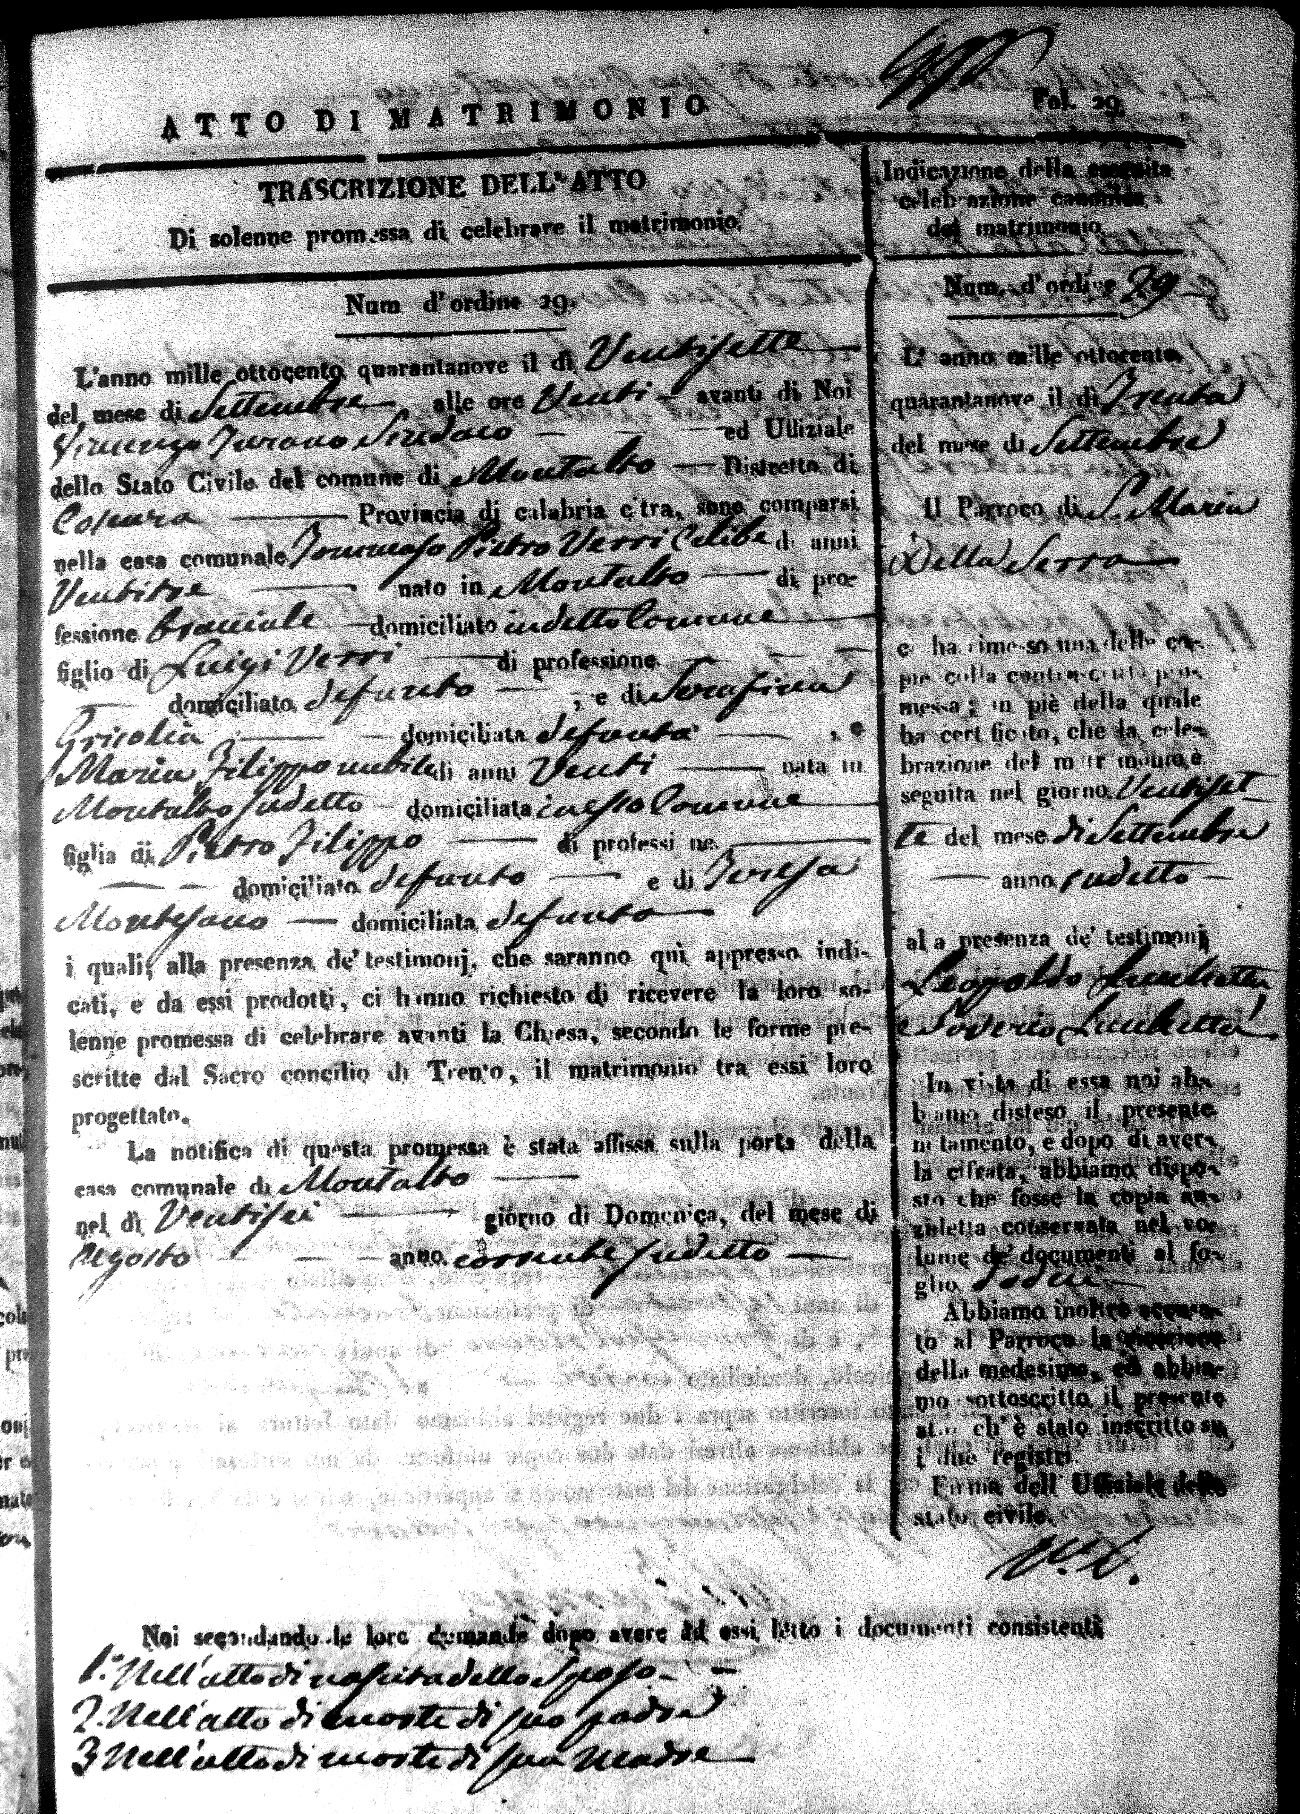 Fol. 29.
ATTO DI MATRIMONIO
TRASCRIZIONE DELL'ATTO
Di solenne promessa di celebrare il matrimonio.
Num d'ordine 29.
L'anno mille ottocento quarantanove il dì Ventisette
del mese di Settembre, alle ore Venti avanti di Noi
Vincenzo Turano Sindaco ed Uffiziale
dello Stato Civile del comune di Montalto Distretto di
Cosenza Provincia di calabria citra, sono comparsi
nella casa comunale Tommaso Pietro Verri Celibe di anni
Ventitre nato in Montalto di pro-
fessione bracciale domiciliato in detto Comune
figlio di Luigi Verri di professione
domiciliato defunto, e di Serafina
Grisolia domiciliata defunta, e
Maria Filippo nubile di anni Venti nata in
Montalto sudetto domiciliata in esso Comune
figlia di Pietro Filippo di professione
domiciliato defunto e di Teresa
Montesano domiciliata defunta
i quali, alla presenza de' testimonj, che saranno quì appresso indi-
cati, e da essi prodotti, ci hanno richiesto di ricevere la loro so-
lenne promessa di celebrare avanti la Chiesa, secondo le forme pre-
scritte dal Sacro concilio di Trento, il matrimonio tra essi loro
progettato.
La notifica di questa promessa è stata affissa sulla porta della
casa comunale di Montalto
nel dì Ventisei giorno di Domenica, del mese di
Agosto anno corrente sudetto
Indicazione della seguita
celebrazione canonica
del matrimonio
Num. d'ordine 29
L' anno mille ottocento
quarantanove il dì Trenta
del mese di Settembre
Il Parroco di S. Maria
Della Serra
ci ha rimesso una delle co-
pie colla controscritta pro-
messa; in piè della quale
ha certificato, che la cele-
brazione del matrimonio è
seguita nel giorno Ventiset-
te del mese di Settembre
anno sudetto
alla presenza de' testimonj
Leopoldo Lucchetta
e Saverio Lucchetta
In vista di essa noi ab-
biamo disteso il presente
notamento, e dopo di aver
la cifrata, abbiamo dispo-
sto che fosse la copia an-
zidetta conservata nel vo-
lume de' documenti al fo-
glio
Abbiamo inoltre accusa-
to al Parroco la ricezione
della medesima, ed abbia-
mo sottoscritto il presente
atto ch'è stato inscritto su
i due registri
Firma dell' Uffiziale dello
stato civile.
Noi secondando le loro domande dopo avere ad essi letto i documenti consistenti
1.° Nell'atto di nascita dello Sposo
2. Nell'atto di morte di suo padre
3 Nell'atto di morte di sua Madre